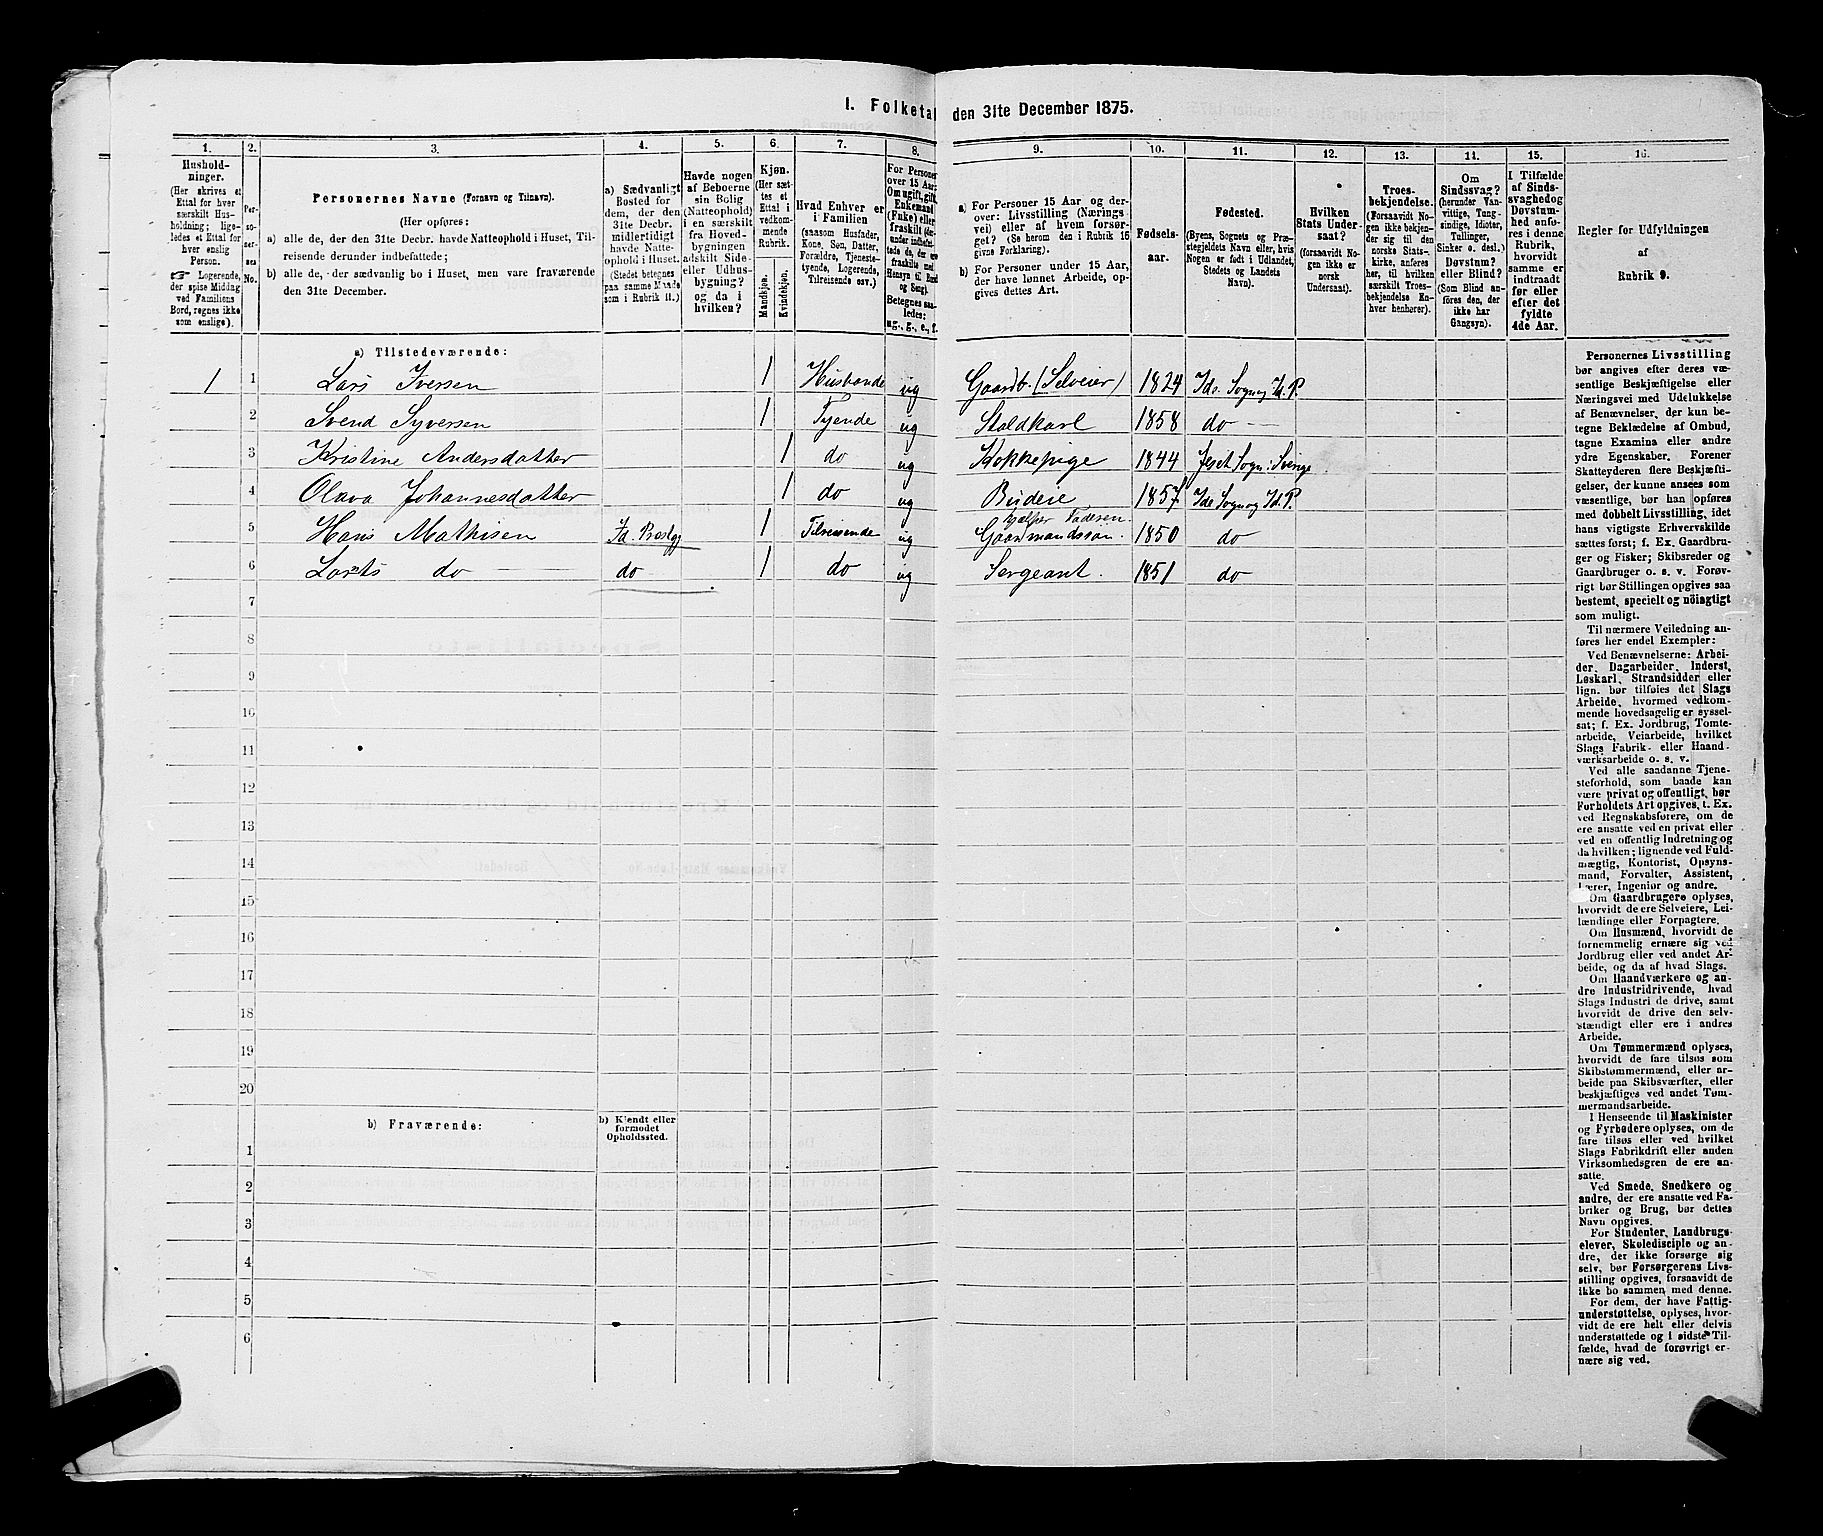 I. Folketal den 31te December 1875.
1. 2. 3. 4. 5. 6. 7. 8. 9. 10. 11. 12. 13. 14. 15. 16.
Husholdninger.
(Her skrives et
Ettal for hver
særskilt Hus-
holdning; lige-
ledes et Ettal for
hver enslig
Person.
☞ Logerende,
der spise Middag
ved Familiens
Bord, regnes ikke
som enslige).
Per-
so-
ner-
nes
No.
Personernes Navne (Fornavn og Tilnavn).
(Her opføres:
a) alle de, der den 31te Decbr. havde Natteophold i Huset, Til-
reisende derunder indbefattede;
b) alle de, der sædvanlig bo i Huset, men vare fraværende
den 31te December.
a) Sædvanligt
Bosted for
dem, der den
31te Decbr.
midlertidigt
havde Natte-
ophold i Huset.
(Stedet betegnes
paa samme Maade
som i Rubrik 11.)
Havde nogen
af Beboerne
sin Bolig
(Natteophold)
i en særskilt
fra Hoved-
bygningen
adskilt Side-
eller Udhus-
bygning?
og da i
hvilken?
Kjøn.
(Her sæt-
tes et
Ettal i
vedkom-
mende
Rubrik.
Mandkjøn.
Kvindekjøn.
Hvad Enhver er
i Familien
(saasom Husfader,
Kone, Søn, Datter,
Forældre, Tjeneste-
tyende, Logerende,
Tilreisende osv.)
For Personer
over 15 Aar:
Om ugift, gift,
Enkemand
(Enke) eller
fraskilt
Betegnes saa-
ledes:
ug., g., e., f.
a) For Personer 15 Aar og der-
over: Livsstilling (Nærings-
vei) eller af hvem forsør-
get? (Se herom den i Rubrik 16
givne Forklaring).
b) For Personer under 15 Aar,
der have lønnet Arbeide, op-
gives dettes Art.
Fødsels-
aar.
Fødested.
(Byens, Sognets og Præ-
stegjeldets Navn eller, hvis
Nogen er født i Udlandet,
Stedets og Landets
Navn).
Hvilken
Stats Under-
saat?
(forsaavidt No-
gen ikke er
norsk
Undersaat).
Troes-
bekjendelse.
(Forsaavidt No-
gen ikke bekjen-
der sig til den
norske Stats-
kirke, anføres
her, til hvilken
særskilt Troes-
bekjendelse En-
hver henhører).
Om
Sindssvag?
(herunder Van-
vittige, Tung-
sindige, Idioter,
Tullinger,
Sinker o. desl.)
Døvstum?
eller Blind?
(Som Blind an-
føres den, der
ikke har
Gangsyn).
I Tilfælde
af Sinds-
svaghed og
Døvstum-
hed anfø-
res i denne
Rubrik,
hvorvidt
samme er
indtraadt
før eller
efter det
fyldte
4de Aar.
Regler for Udfyldningen
af
Rubrik 9.
a) Tilstedeværende:
1 1 Lars Iversen 1 Husbonde ug Gaardb. (Selveier) 1824 Ide Sogn og Id. P.
2 Svend Syversen 1 Tyende ug Staldkarl 1858 do
3 Kristine Andersdatter 1 do ug Kokkepige 1844 Sogn: Sverige
4 Olava Johannesdatter 1 do ug Budeie 1857 Ide Sogn og Id. P.
5 Hans Mathisen Id. Prestgj 1 Tilreisende ug hjelper Faderen Gaardmandssøn 1850 do
6 do do 1 do ug Sergeant. 1851 do
7
8
9
10
11
12
13
14
15
16
17
18
19
20
b) Fraværende:
b) Kjendt eller
formodet
Opholdssted.
1
2
3
4
5
6
Personernes Livsstilling
bør angives efter deres væ-
sentlige Beskjæftigelse eller
Næringsvei med Udelukkelse
af Benævnelser, der kun be-
tegne Beklædelse af Ombud,
tagne Examina eller andre
ydre Egenskaber. Forener
Skatteyderen flere Beskjæfti-
gelser, der kunne ansees som
væsentlige, bør han opføres
med dobbelt Livsstilling, idet
hans vigtigste Erhvervskilde
sættes først; f. Ex. Gaardbru-
ger og Fisker; Skibsreder og
Gaardbruger o. s. v. Forøv-
rigt bør Stillingen opgives saa
bestemt, specielt og nøiagtigt
som muligt.
Til nærmere Veiledning an-
føres her endel Exempler:
Ved Benævnelserne: Arbei-
der, Dagarbeider, Inderst,
Løskarl, Strandsidder eller
lign. bør tilføies det Slags
Arbeide, hvormed vedkom-
mende hovedsagelig er syssel-
sat; f. Ex. Jordbrug, Tomte-
arbeide, Veiarbeide, hvilket
Slags Fabrik- eller Haand-
værksarbeide o. s. v.
Ved alle saadanne Tjene-
steforhold, som baade kan
være privat og offentligt, bør
Forholdets Art opgives, t. Ex.
ved Regnskabsførere, om de
ere ansatte ved en privat eller
ved en offentlig Indretning og
da hvilken; lignende ved Fuld-
mægtig, Kontorist, Opsyns-
mand, Forvalter, Assistent,
Lærer, Ingeniør og andre.
Om Gaardbrugere oplyses,
hvorvidt de ere Selveiere, Lei-
lændinge eller Forpagtere.
Om Husmænd, hvorvidt de
fornemmelig ernære sig ved
Jordbrug eller ved andet Ar-
beide, og da af hvad Slags.
Om Haandværkere og an-
dre Industridrivende, hvad
Slags Industri de drive, samt
hvorvidt de drive den selv-
stændigt eller ere i andres
Arbeide.
Om Tømmermænd oplyses,
hvorvidt de fare tilsøs som
Skibstømmermænd, eller ar-
beide paa Skibsværfter, eller
beskjæftiges ved andet Tøm-
mermandsarbeide.
I Henseende til Maskinister
og Fyrbødere oplyses, om de
fare tilsøs eller ved hvilket
Slags Fabrikdrift eller anden
Virksomhedsgren de ere an-
satte.
Ved Smede, Snedkere og
andre, der ere ansatte ved Fa-
briker og Brug, bør dettes
Navn opgives.
For Studenter, Landbrugs-
elever, Skoledisciple og an-
dre, der ikke forsørge sig
selv, bør Forsørgerens Livs-
stilling opgives, forsaavidt de
ikke bo sammen med denne.
For dem, der have Fattig-
understøttelse, oplyses, hvor-
vidt de ere helt eller delvis
understøttede og i sidste Til-
fælde, hvad de forøvrigt er-
nære sig ved.